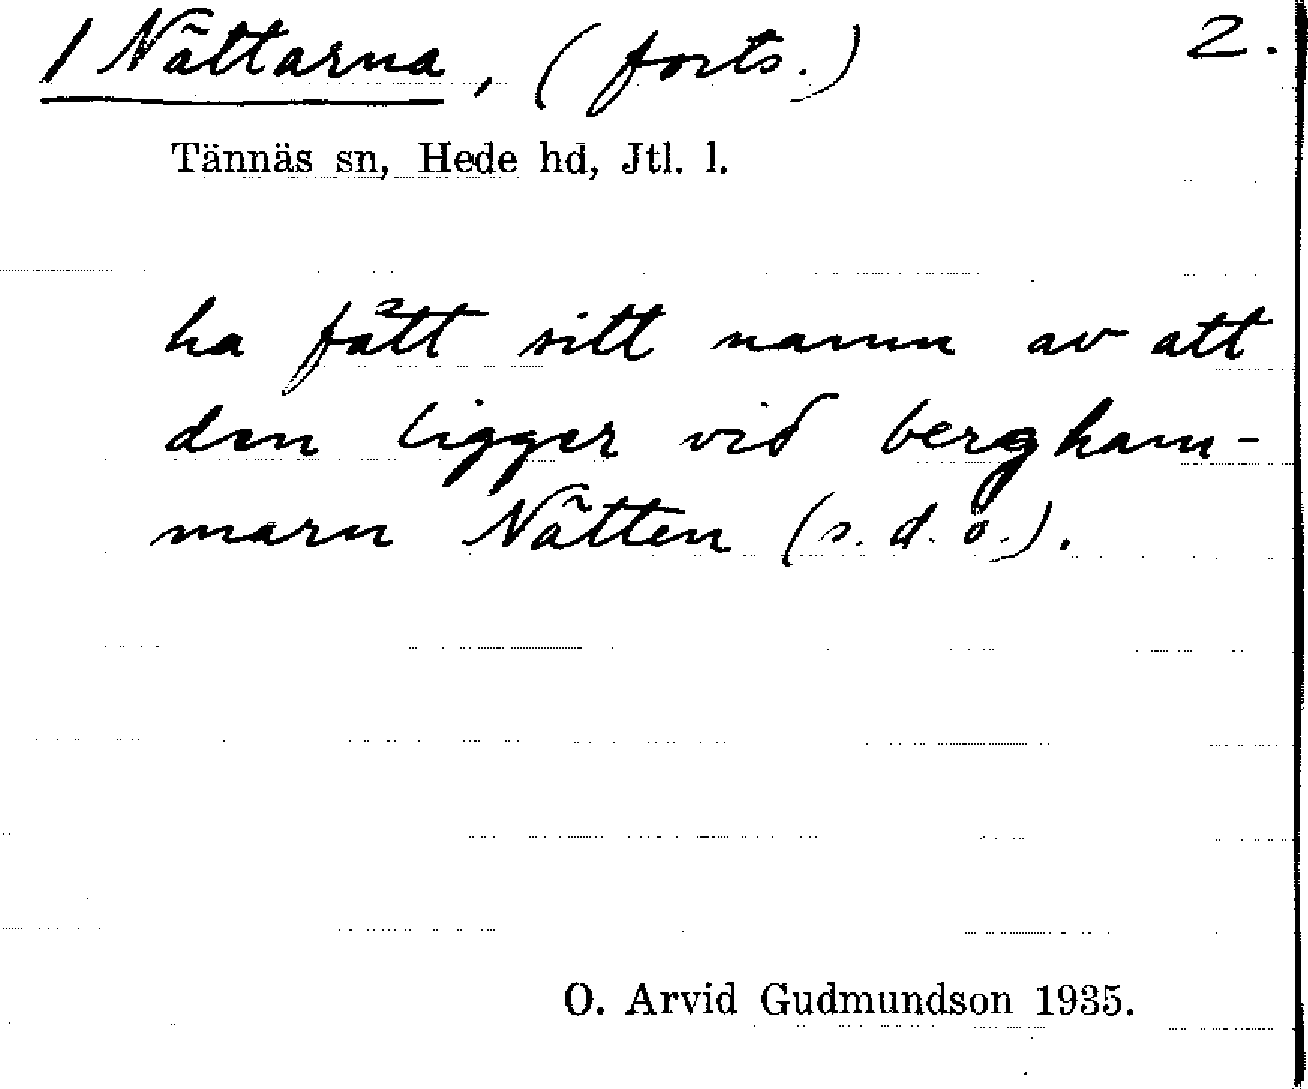 / Nättarna, (forts.) 2.
Tännäs sn, Hede hd, Jtl. l.
ha fått sitt namn av att
den ligger vid bergham-
marn Nätten (s. d. o.).
O. Arvid Gudmundson 1935.